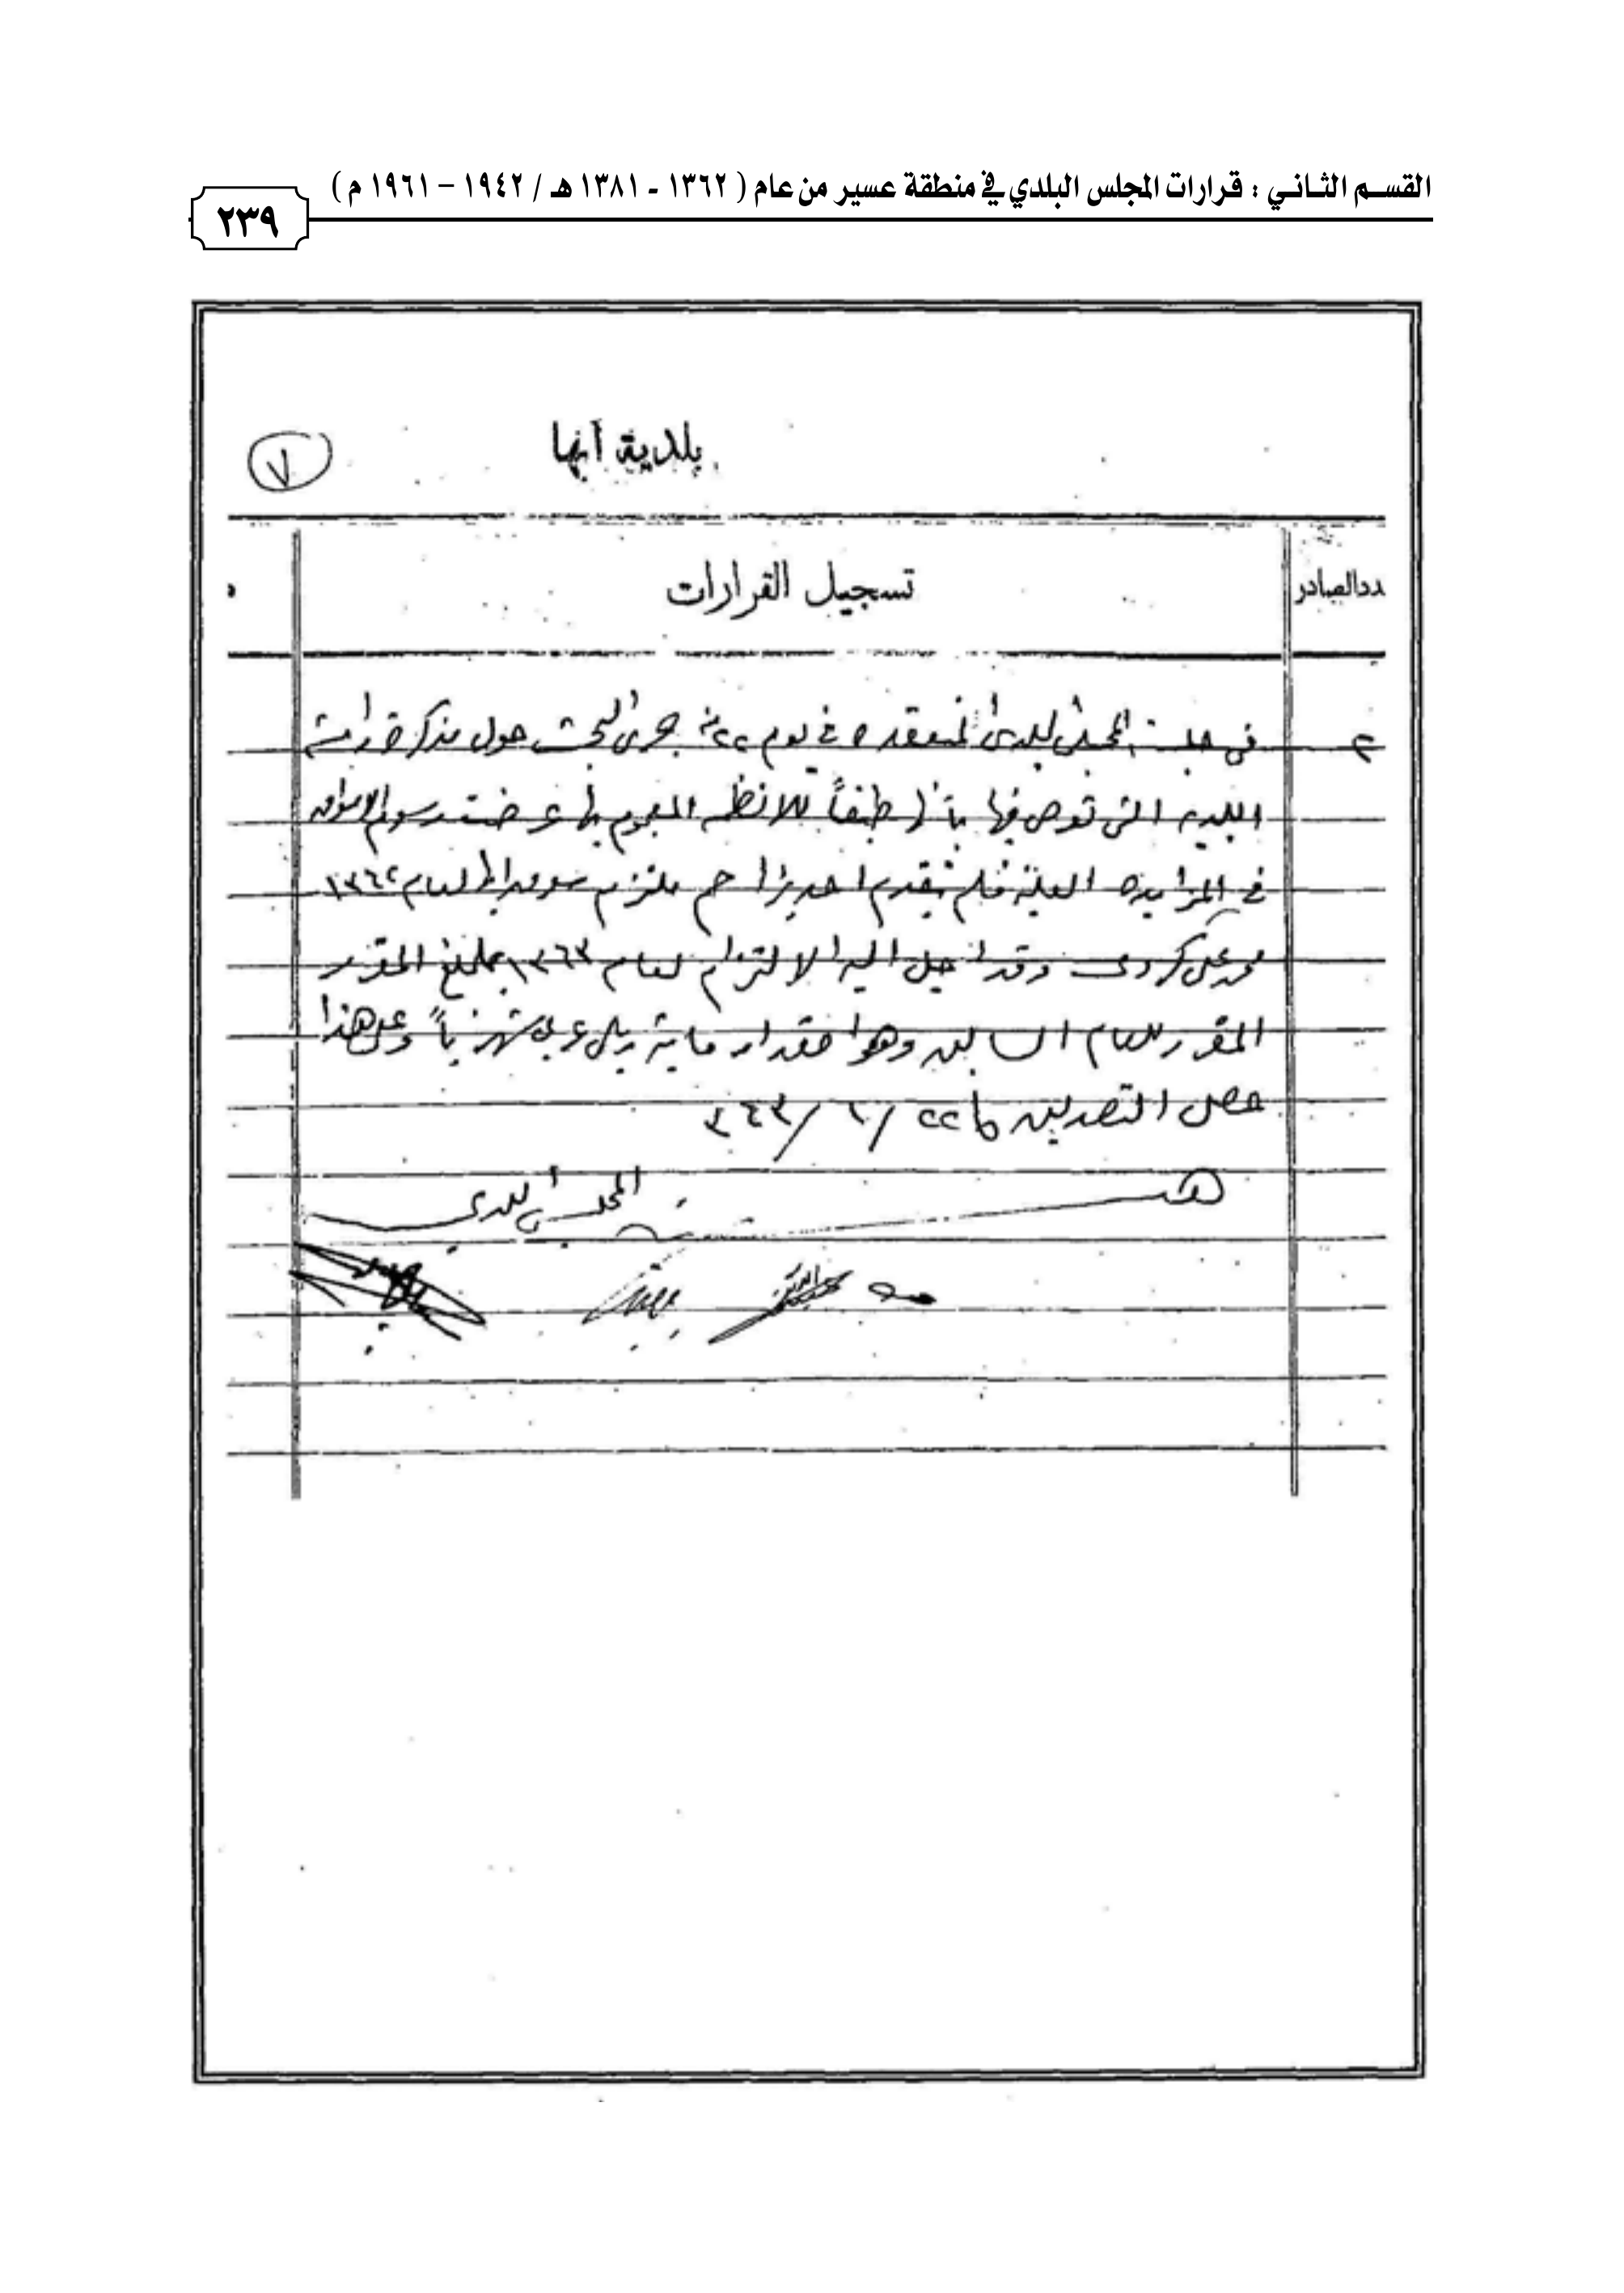 القسم الثاني : قرارات المجلس البلدي في منطقة عسير من عام ( ١٣٦٢ - ١٣٨١ هـ / ١٩٤٢ – ١٩٦١ م )
٢٣٩
بلدية أبها
٧
عدد الصادر
تسجيل القرارات
٢
في جلسة المجلس البلدي المنعقده في يوم ٢٢ منه جرى البحث حول مذكرة رئاسة
البلديه التي توضح فيها بأن طبقاً للانظمه المعموم بها عرضت رسوم الاسواق
في المزايده العلنيه فلم يتقدم احد يزاحم ملتزم سوق ابها لعام ١٣٦٢
محمد علي كردي وقد احيل اليه الالتزام لعام ١٣٦٣ بمبلغ المقرر
المقرر للعام السابق وهوا مقدار ماية ريال عربي شهرياً وعلى هذا
حصل التصديق ٢٢ / ٢ / ٣٦٣
المجلس البلدي